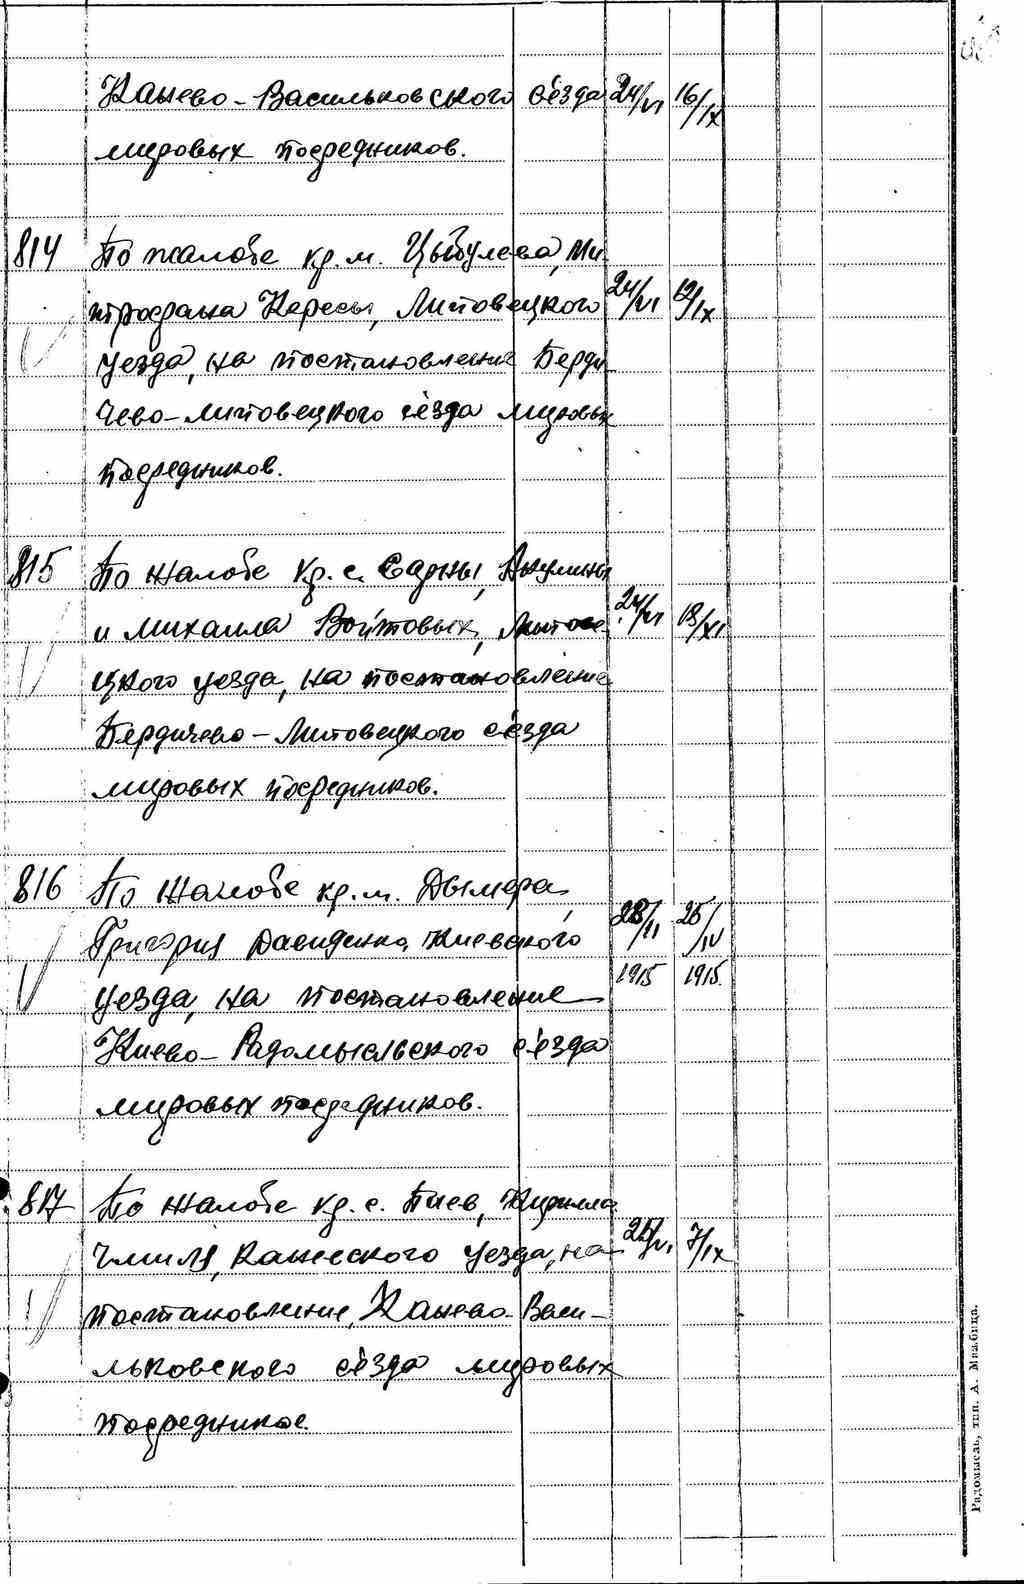 Канево-Васильковского съезда 24/VI 16/IX
мировых посредников.
814 По жалобе кр. м. Цыбулева, Ми-
трофана Кересы, Липовецкого 24/VI 12/IX
уезда, на постановление Берди
чево-Липовецкого съезда мировых
посредников.
815 По жалобе кр. с. Сарны, Акулины
и Михаила Войтовых, Липове- 24/VI 18/XI
цкого уезда, на постановление
Бердичево-Липовецкого съезда
мировых посредников.
816 По жалобе кр. м. Дымера,
Григория Давиденко, Киевского 28/II 25/IV
уезда, на постановление 1915 1915.
Киево-Радомысльского съезда
мировых посредников.
817 По жалобе кр. с. Пиев, Кирилла
Чмиля, Каневского уезда, на 25/VI 7/IX
постановление Канево-Васи-
льковского съезда мировых
посредников.
Радомысль, тип. А.